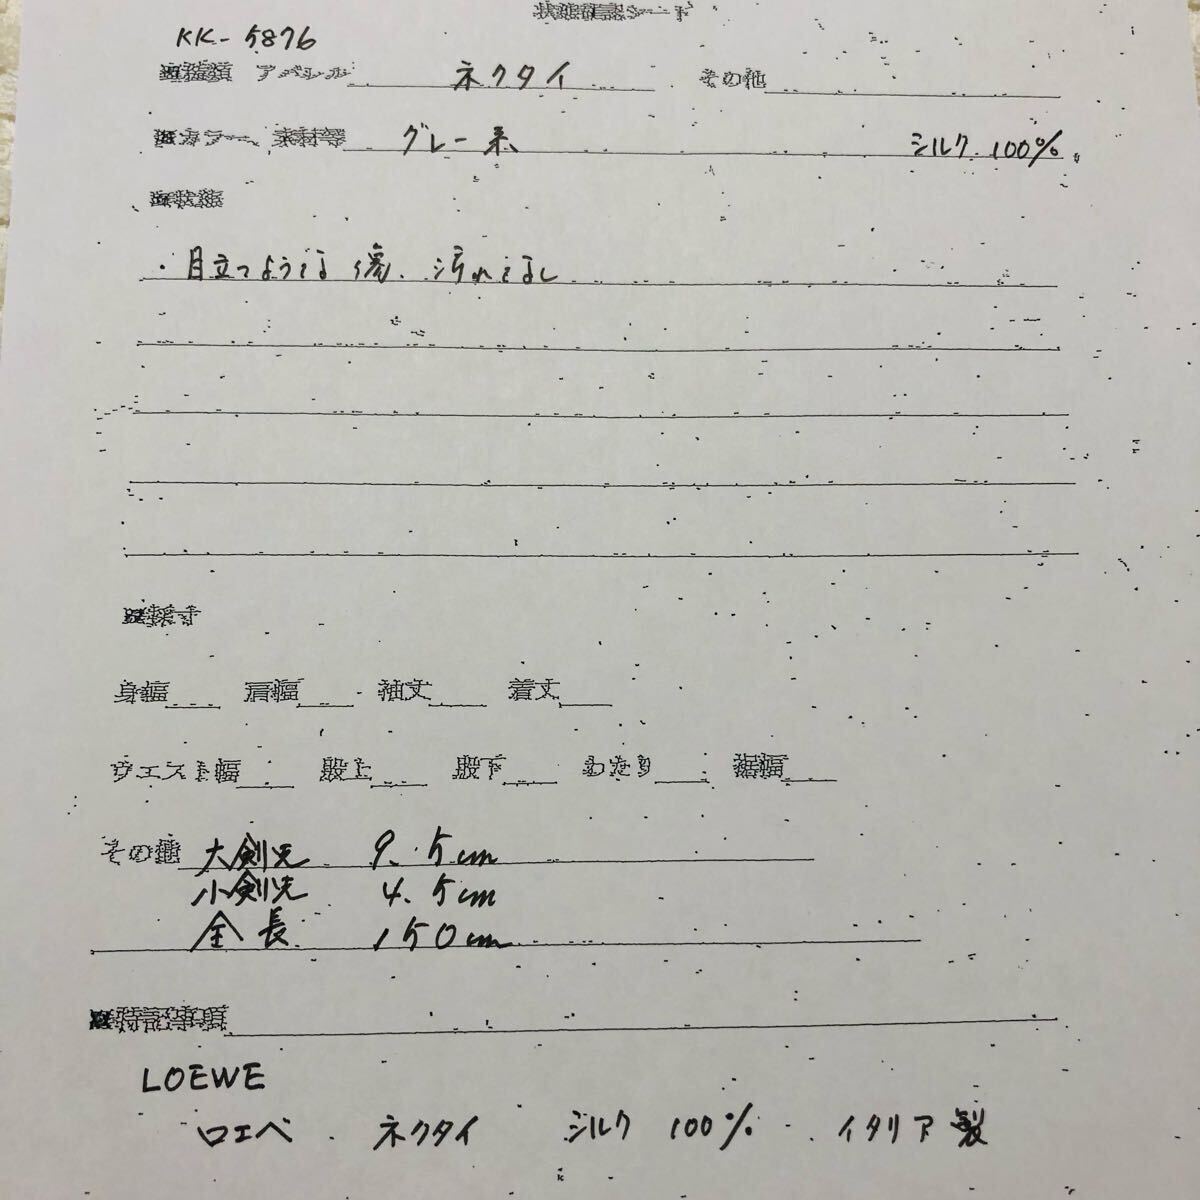 状態確認シート
KK-5876
■種類 アパレル ネクタイ その他
■カラー、素材等 グレー系 シルク 100%
■状態
・目立つような傷、汚れなし
■採寸
身幅 肩幅 袖丈 着丈
ウエスト幅 股上 股下 わたり 裾幅
その他 大剣先 9.5cm
小剣先 4.5cm
全長 150cm
■特記事項
LOEWE
ロエベ ネクタイ シルク 100% イタリア製